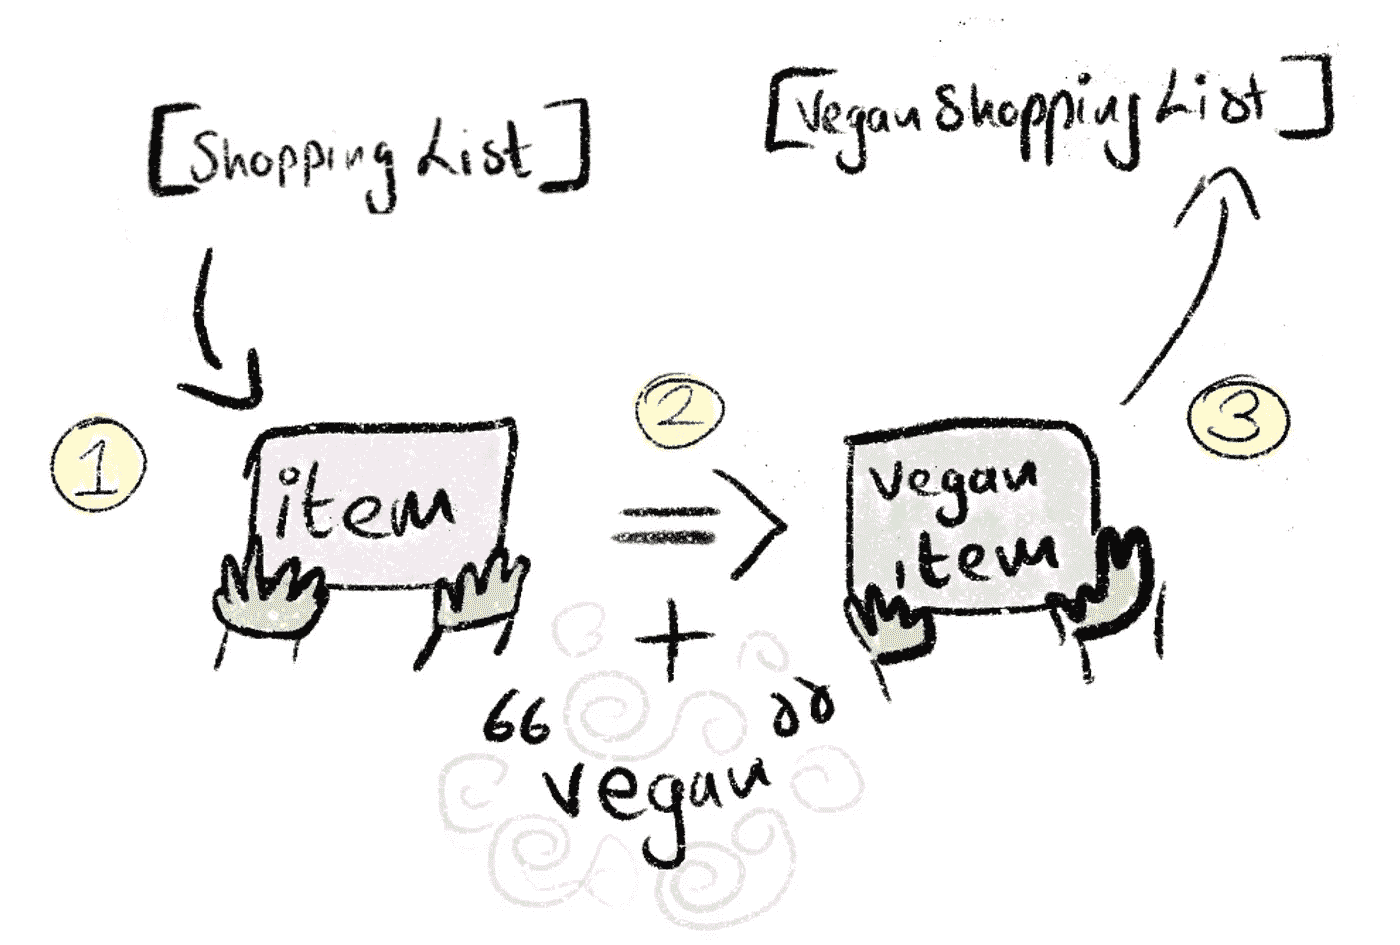 [Shopping List]
[Vegan Shopping List]
1
item
2
=>
+
“vegan”
vegan
item
3